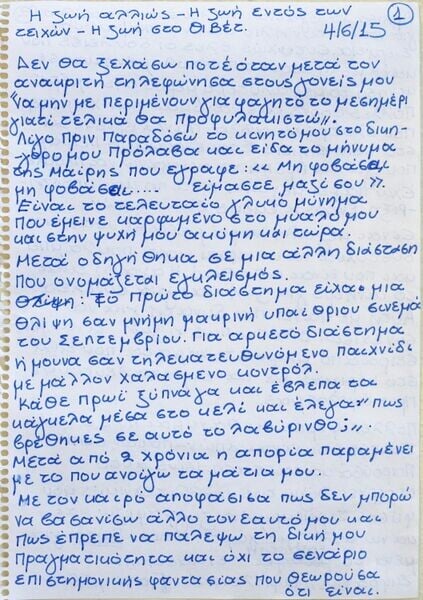 Η ζωή αλλιώς – Η ζωή εντός των
τειχών – Η ζωή στο Θιβέτ.
4/6/15
1
Δεν θα ξεχάσω ποτέ όταν μετά τον
ανακριτή τηλεφώνησα στους γονείς μου
"να μην με περιμένουν για φαγητό το μεσημέρι
γιατί τελικά θα προφυλακιστώ".
Λίγο πριν παραδόσω το κινητό μου στο δικη-
γόρο μου πρόλαβα και είδα το μήνυμα
της Μαίρης που έγραφε: «Μη φοβάσαι
μη φοβάσαι.... είμαστε μαζί σου».
Είναι το τελευταίο γλυκό μήνημα
που έμεινε καρφωμένο στο μυαλό μου
και στην ψυχή μου ακόμη και τώρα.
Μετά οδηγήθηκα σε μια άλλη διάσταση
που ονομάζεται εγκλεισμός.
Θλίψη: Το πρώτο διάστημα είχα μια
θλίψη σαν μνήμη μακρινή υπαιθριου σινεμά
του Σεπτεμβρίου. Για αρκετό διάστημα
ήμουνα σαν τηλεκατευθυνόμενο παιχνίδι
με μάλλον χαλασμένο κοντρόλ.
Κάθε πρωί ξύπναγα και έβλεπα τα
κάγκελα μέσα στο κελί και έλεγα "πως
βρέθηκες σε αυτό το λαβύρινθο;".
Μετά από 2 χρόνια η απορία παραμένει
με το που ανοίγω τα μάτια μου.
Με τον καιρό αποφάσισα πως δεν μπορώ
να βασανίσω άλλο τον εαυτό μου και
πως έπρεπε να παλέψω τη δική μου
πραγματικότητα και όχι το σενάριο
επιστημονικής φαντασίας που θεωρούσα
ότι είναι.